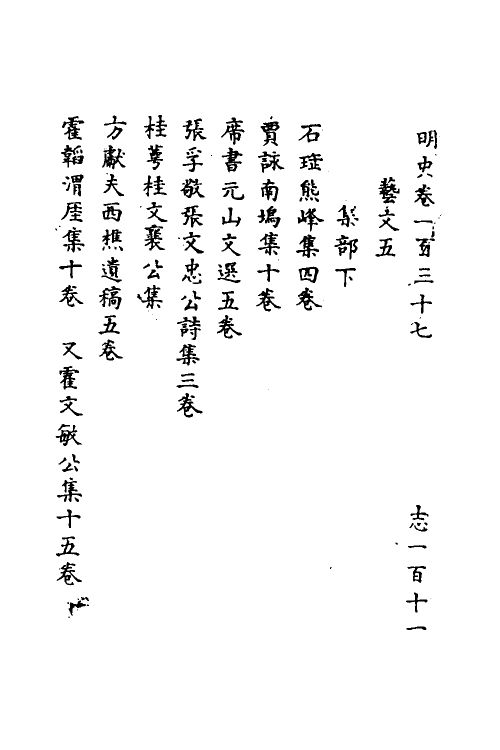 明史卷一百三十七 志一百十一
藝文五
集部下
石珤熊峰集四卷
賈詠南塢集十卷
席書元山文選五卷
張孚敬張文忠公詩集三卷
桂萼桂文襄公集
方獻夫西樵遺稿五卷
霍韜渭厓集十卷 又霍文敏公集十五卷